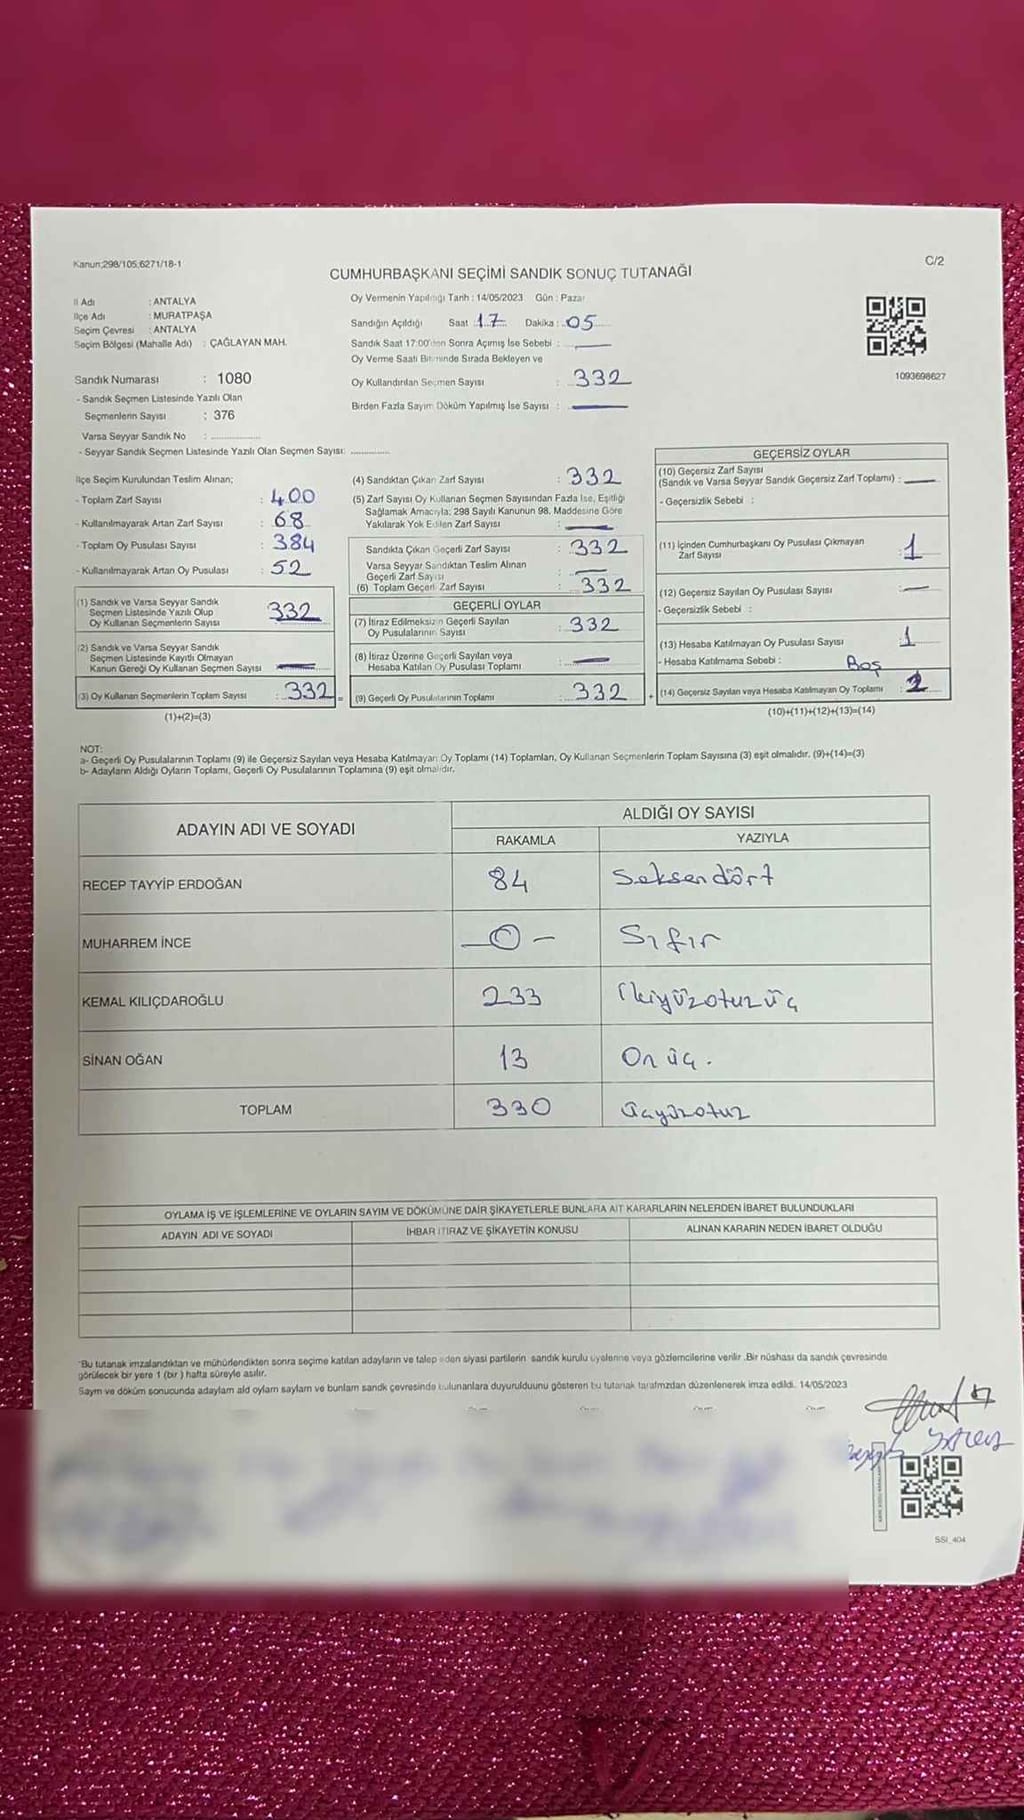 Kanun;298/105;6271/18-1
C/2
CUMHURBAŞKANI SEÇİMİ SANDIK SONUÇ TUTANAĞI
İl Adı : ANTALYA
İlçe Adı : MURATPAŞA
Seçim Çevresi : ANTALYA
Seçim Bölgesi (Mahalle Adı) : ÇAĞLAYAN MAH.
Sandık Numarası : 1080
- Sandık Seçmen Listesinde Yazılı Olan
Seçmenlerin Sayısı : 376
Varsa Seyyar Sandık No : ..............
- Seyyar Sandık Seçmen Listesinde Yazılı Olan Seçmen Sayısı: ..............
Oy Vermenin Yapıldığı Tarih : 14/05/2023 Gün : Pazar
Sandığın Açıldığı Saat 17 Dakika : 05
Sandık Saat 17:00'den Sonra Açımış İse Sebebi : —
Oy Verme Saati Bitiminde Sırada Bekleyen ve
Oy Kullandırılan Seçmen Sayısı : 332
Birden Fazla Sayım Döküm Yapılmış İse Sayısı : —
1093698627
İlçe Seçim Kurulundan Teslim Alınan;
- Toplam Zarf Sayısı : 400
- Kullanılmayarak Artan Zarf Sayısı : 68
- Toplam Oy Pusulası Sayısı : 384
- Kullanılmayarak Artan Oy Pusulası : 52
(1) Sandık ve Varsa Seyyar Sandık
Seçmen Listesinde Yazılı Olup
Oy Kullanan Seçmenlerin Sayısı 332
(2) Sandık ve Varsa Seyyar Sandık
Seçmen Listesinde Kayıtlı Olmayan
Kanun Gereği Oy Kullanan Seçmen Sayısı —
(3) Oy Kullanan Seçmenlerin Toplam Sayısı : 332 =
(1)+(2)=(3)
(4) Sandıktan Çıkan Zarf Sayısı : 332
(5) Zarf Sayısı Oy Kullanan Seçmen Sayısından Fazla İse, Eşitliği
Sağlamak Amacıyla; 298 Sayılı Kanunun 98. Maddesine Göre
Yakılarak Yok Edilen Zarf Sayısı : —
Sandıkta Çıkan Geçerli Zarf Sayısı : 332
Varsa Seyyar Sandıktan Teslim Alınan
Geçerli Zarf Sayısı : —
(6) Toplam Geçerli Zarf Sayısı : 332
GEÇERLİ OYLAR
(7) İtiraz Edilmeksizin Geçerli Sayılan
Oy Pusulalarının Sayısı : 332
(8) İtiraz Üzerine Geçerli Sayılan veya
Hesaba Katılan Oy Pusulası Toplamı : —
(9) Geçerli Oy Pusulalarının Toplamı : 332 +
GEÇERSİZ OYLAR
(10) Geçersiz Zarf Sayısı
(Sandık ve Varsa Seyyar Sandık Geçersiz Zarf Toplamı) : —
- Geçersizlik Sebebi :
(11) İçinden Cumhurbaşkanı Oy Pusulası Çıkmayan
Zarf Sayısı : 1
(12) Geçersiz Sayılan Oy Pusulası Sayısı : —
- Geçersizlik Sebebi :
(13) Hesaba Katılmayan Oy Pusulası Sayısı : 1
- Hesaba Katılmama Sebebi : Boş
(14) Geçersiz Sayılan veya Hesaba Katılmayan Oy Toplamı : 2
(10)+(11)+(12)+(13)=(14)
NOT:
a- Geçerli Oy Pusulalarının Toplamı (9) ile Geçersiz Sayılan veya Hesaba Katılmayan Oy Toplamı (14) Toplamları, Oy Kullanan Seçmenlerin Toplam Sayısına (3) eşit olmalıdır. (9)+(14)=(3)
b- Adayların Aldığı Oyların Toplamı, Geçerli Oy Pusulalarının Toplamına (9) eşit olmalıdır.
ADAYIN ADI VE SOYADI
ALDIĞI OY SAYISI
RAKAMLA YAZIYLA
RECEP TAYYİP ERDOĞAN 84 Seksendört
MUHARREM İNCE —0— Sıfır
KEMAL KILIÇDAROĞLU 233 İkiyüzotuzüç
SİNAN OĞAN 13 Onüç.
TOPLAM 330 Üçyüzotuz
OYLAMA İŞ VE İŞLEMLERİNE VE OYLARIN SAYIM VE DÖKÜMÜNE DAİR ŞİKAYETLERLE BUNLARA AİT KARARLARIN NELERDEN İBARET BULUNDUKLARI
ADAYIN ADI VE SOYADI İHBAR İTİRAZ VE ŞİKAYETİN KONUSU ALINAN KARARIN NEDEN İBARET OLDUĞU
*Bu tutanak imzalandıktan ve mühürlendikten sonra seçime katılan adayların ve talep eden siyasi partilerin sandık kurulu üyelerine veya gözlemcilerine verilir .Bir nüshası da sandık çevresinde
görülecek bir yere 1 (bir ) hafta süreyle asılır.
Sayım ve döküm sonucunda adaylam ald oylam saylam ve bunlam sandk çevresinde bulunanlara duyurulduunu gösteren bu tutanak tarafmzdan düzenlenerek imza edildi. 14/05/2023
SSİ_404